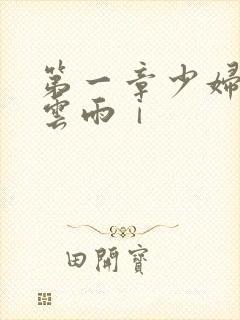 第一章少婦
雲雨|
田開寶